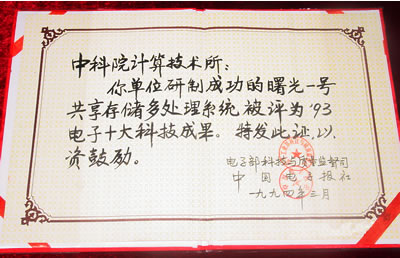 中科院计算技术所：
你单位研制成功的曙光一号
共享存储多处理系统被评为'93
电子十大科技成果。特发此证，以
资鼓励。
电子部科技与质量监督司
中国电子报社
一九九四年三月